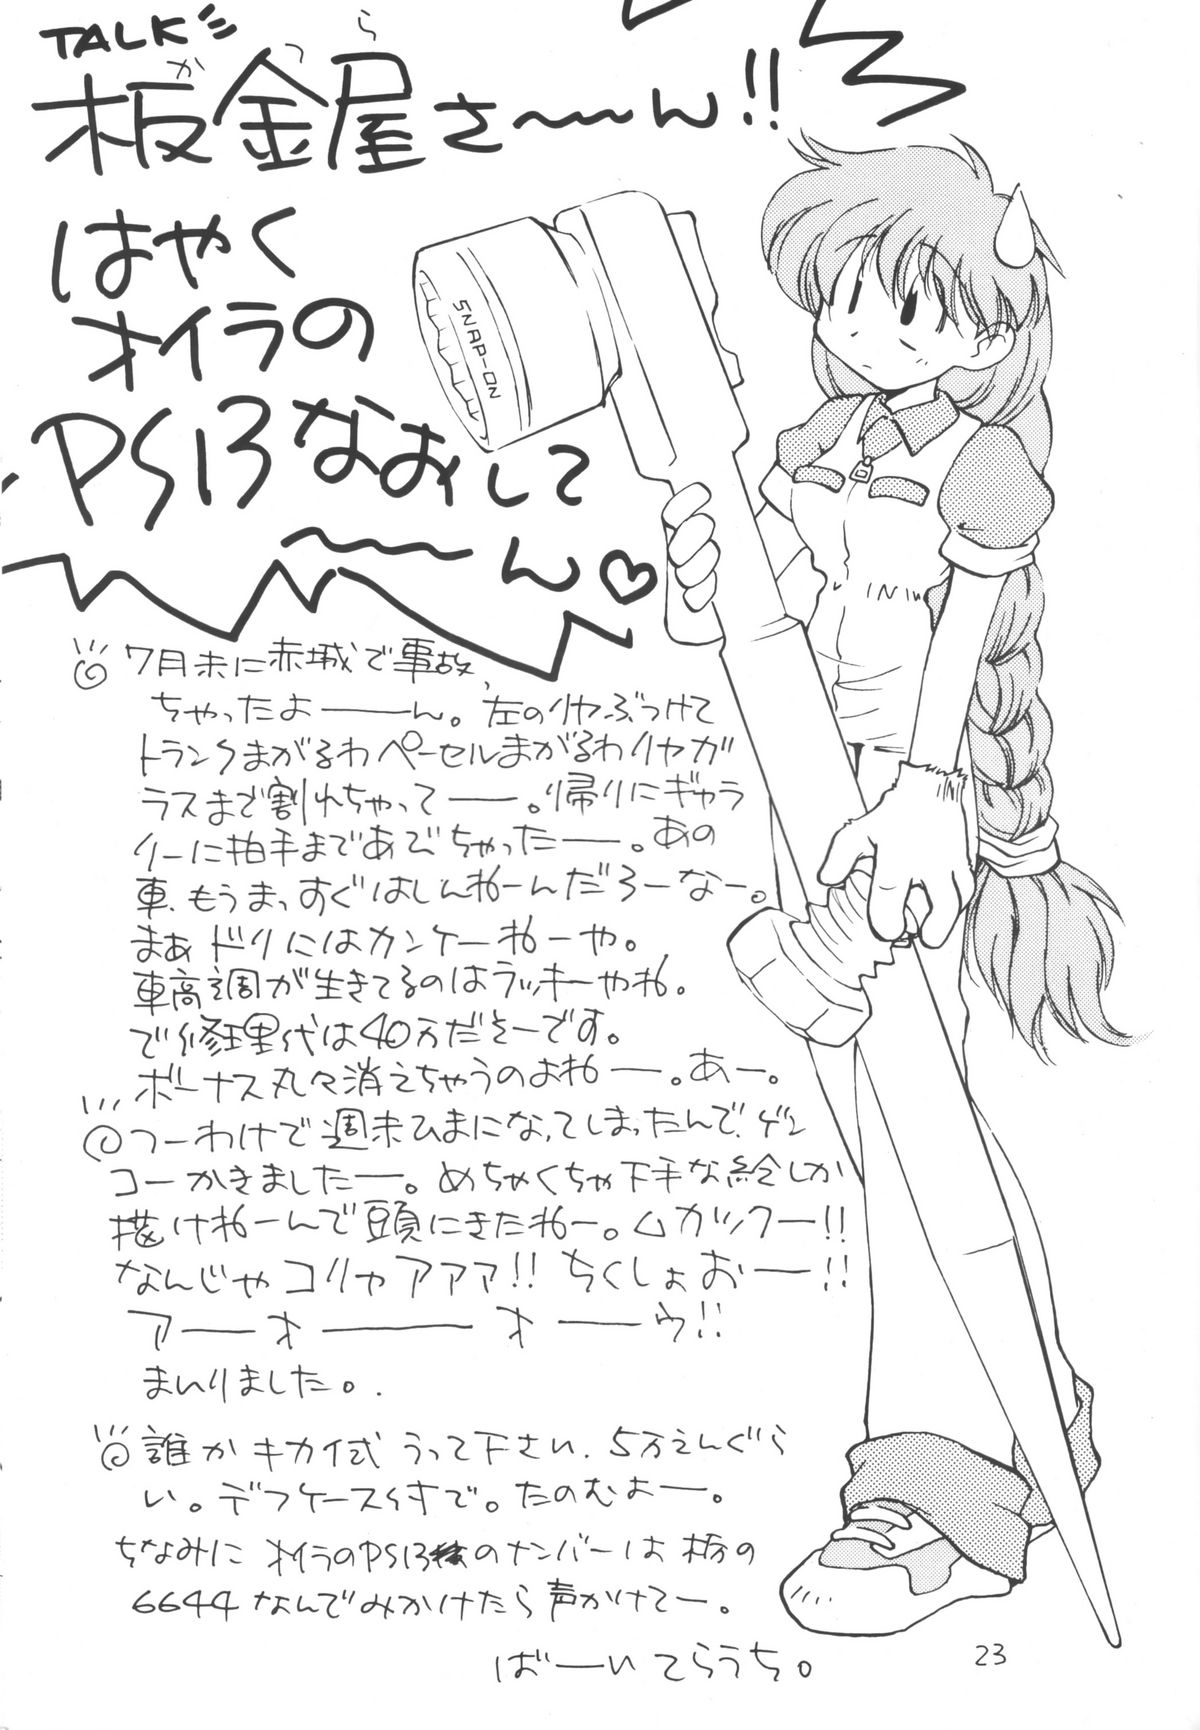 TALK
板金屋さ〜〜ん!!
か つ ら
はやく
オイラの
PS13なおして
〜〜ん♡
SNAP-ON
◎7月末に赤城で事故
ちゃったよーーん。左のリヤぶつけて
トランクまがるわペーセルまがるわリヤガ
ラスまで割れちゃってー。帰りにギャラ
リーに拍手まであびちゃったー。あの
車、もうまっすぐはしんねーんだろーなー。
まぁドリにはカンケーねーや。
車高調が生きてるのはラッキーやね。
で修理代は40万だそーです。
ボーナス丸々消えちゃうのよねー。あー。
◎つーわけで週末ひまになってしまったんで、ゲン
コーかきましたー。めちゃくちゃ下手な絵しか
描けねーんで頭にきたねー。ムカックー!!
なんじゃコリャアァァ!! ちくしょおー!!
アーーオーーーオーーゥ!!
まいりました。.
◎誰かキカイ式うって下さい、5万えんぐら
い。デフケース付で。たのむよー。
ちなみにオイラのPS13のナンバーは栃の
6644なんでみかけたら声かけてー。
ばーい てらうち。
23